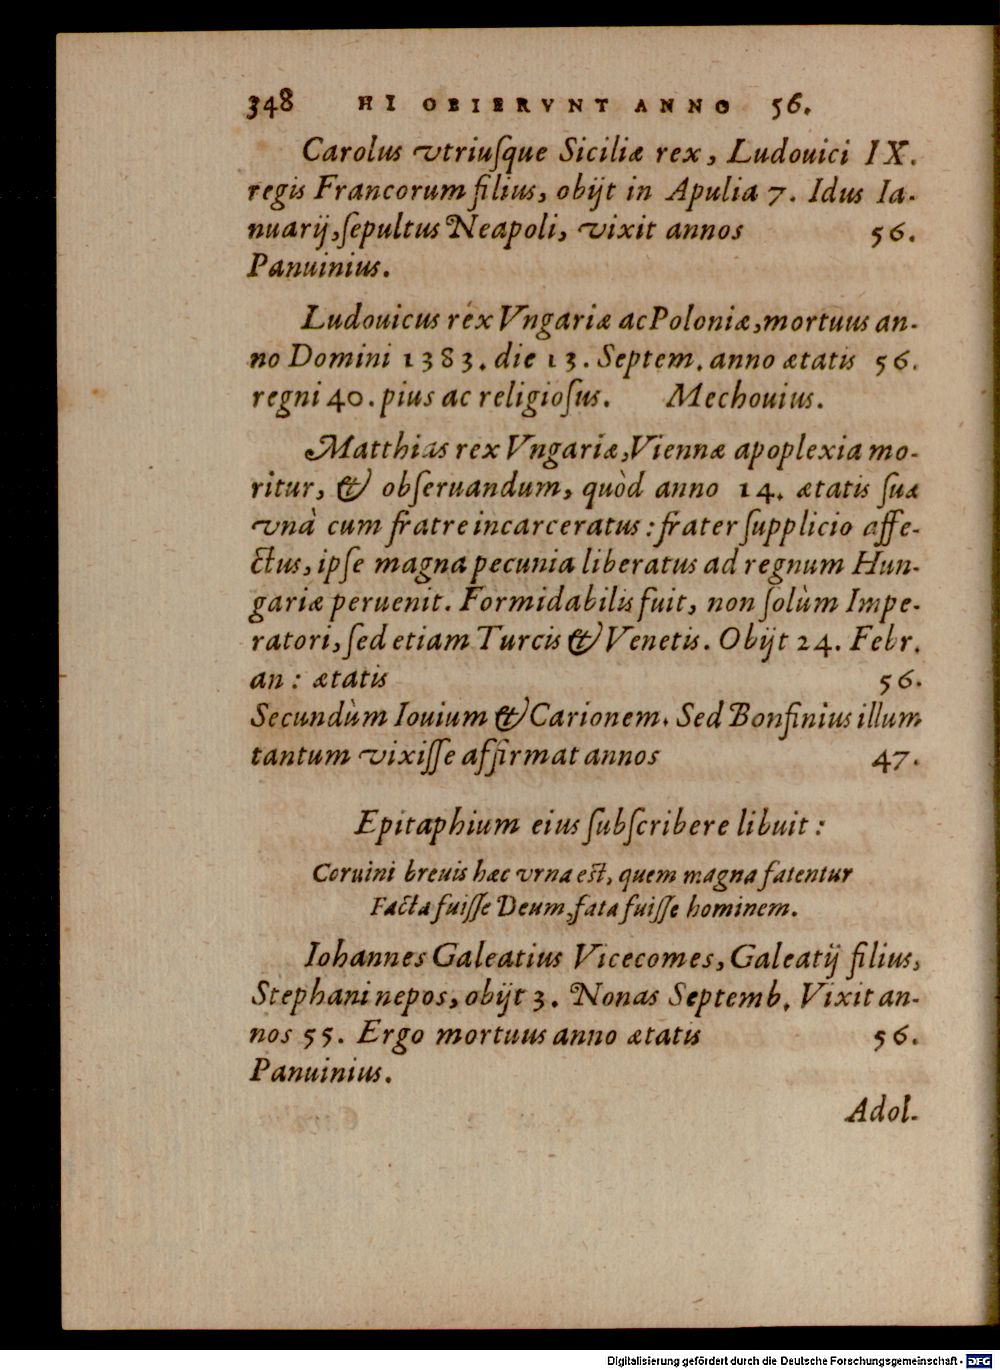 348 HI OBIERVNT ANNO 56.
Carolus vtriuſque Siciliæ rex, Ludouici IX.
regis Francorum filius, obijt in Apulia 7. Idus Ia-
nuarij, ſepultus Neapoli, vixit annos 56.
Panuinius.
Ludouicus rex Vngariæ ac Poloniæ, mortuus an-
no Domini 1383. die 13. Septem. anno ætatis 56.
regni 40. pius ac religioſus. Mechouius.
Matthias rex Vngariæ, Viennæ apoplexia mo-
ritur, & obſeruandum, quòd anno 14. ætatis ſuæ
vnà cum fratre incarceratus: frater ſupplicio affe-
ctus, ipſe magna pecunia liberatus ad regnum Hun-
gariæ peruenit. Formidabilis fuit, non ſolùm Impe-
ratori, ſed etiam Turcis & Venetis. Obijt 24. Febr.
an: ætatis 56.
Secundùm Iouium & Carionem. Sed Bonfinius illum
tantum vixiſſe affirmat annos 47.
Epitaphium eius ſubſcribere libuit:
Coruini breuis hæc vrna eſt, quem magna fatentur
Facta fuiſſe Deum, fata fuiſſe hominem.
Iohannes Galeatius Vicecomes, Galeatij filius,
Stephani nepos, obijt 3. Nonas Septemb. Vixit an-
nos 55. Ergo mortuus anno ætatis 56.
Panuinius.
Adol-
Digitalisierung gefördert durch die Deutsche Forschungsgemeinschaft - DFG